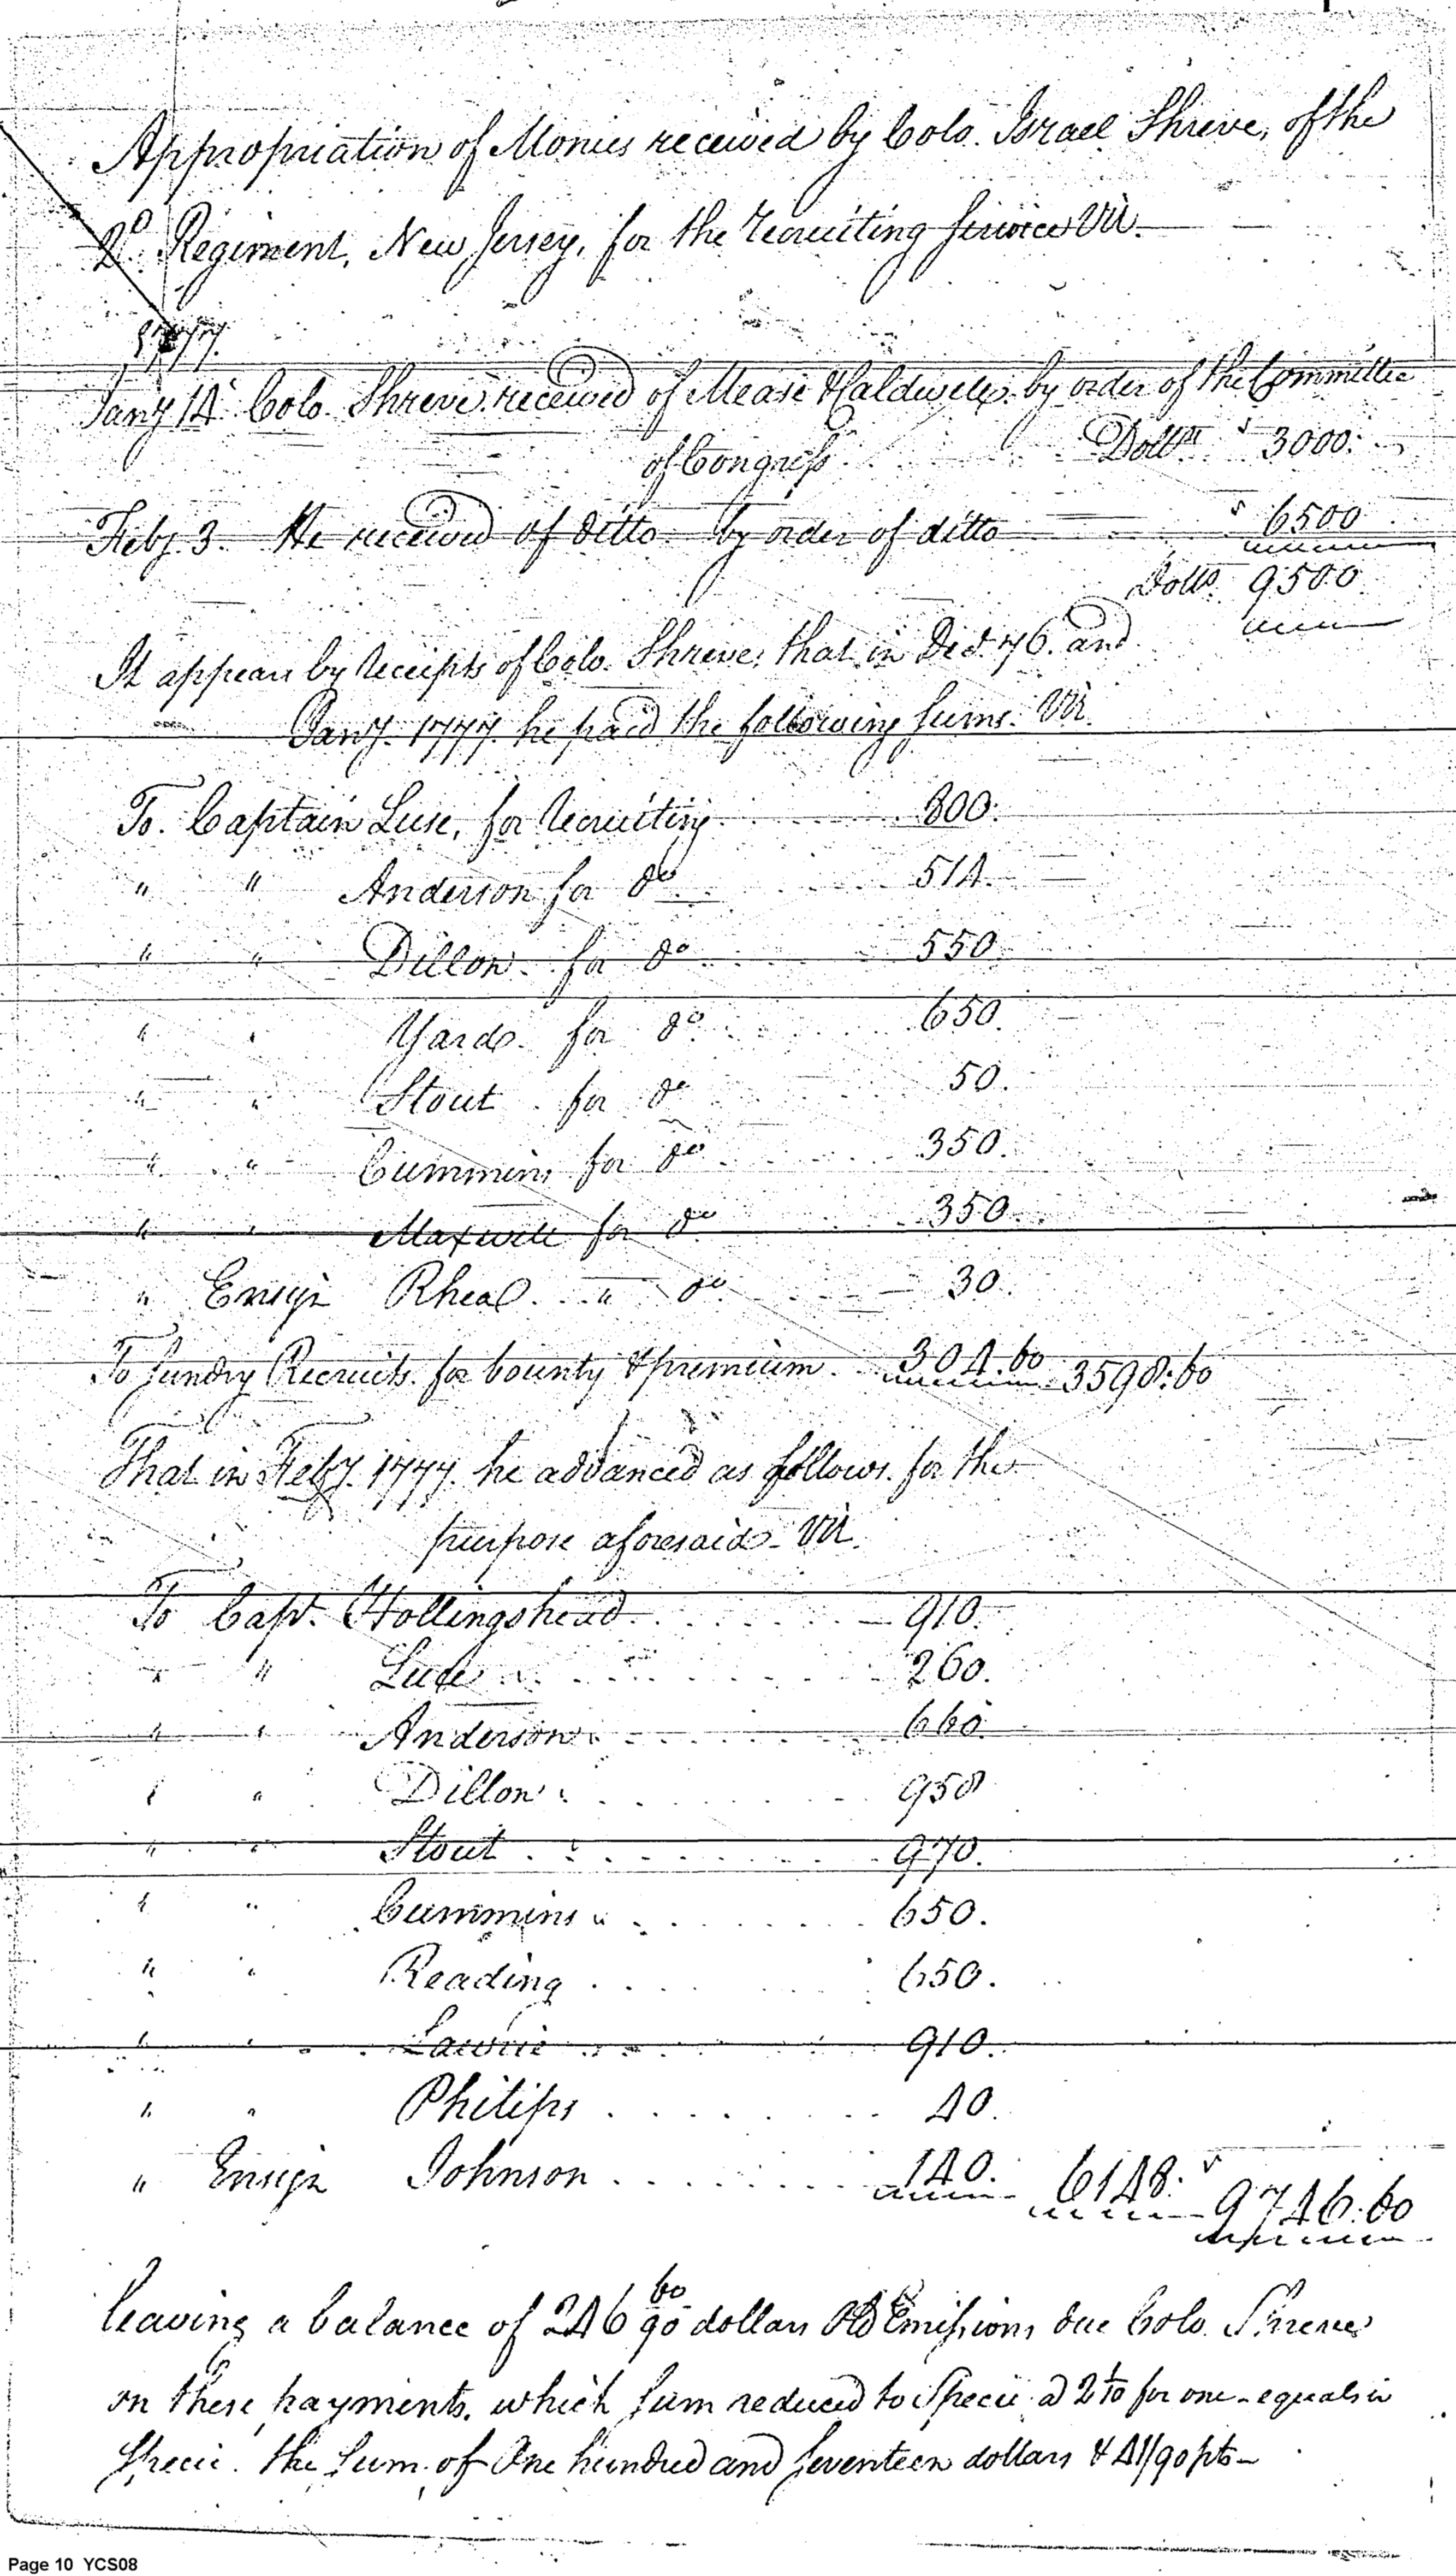 Appropriation of Monies received by Colo. Israel Shreve, of the
2D. Regiment, New Jersey, for the recruiting service Viz.
1777.
Jany 14 Colo. Shreve received of Mease & Caldwell, by order of the Committee
of Congress Dollrs 3000.
Feby. 3. He received of ditto by order of ditto 6500
Dolls. 9500
It appears by receipts of Colo. Shreve, that in Decr. 76. and
Jany. 1777. he paid the following sums. Viz.
To. Captain Luse, for recruiting 800.
" " Anderson for do 514.
" " Dillon. for do 550.
" " Yard. for do. 650.
" " Stout. for do 50.
" " Cummins for do 350.
" " Maxwell for do 350.
" Ensign Rhea. " do 30.
To sundry Recruits. for bounty & premium. 304.60 3598.60
That in Feby. 1777. he advanced as follows. for the
purpose aforesaid. Viz.
To Capt. Hollingshead 910.
" " Luse 260.
" " Anderson 660
" " Dillon 958
" " Stout 970.
" " Cummins 650.
" " Reading 650.
" " Lawrie 910.
" " Philips 40.
" Ensign Johnson 140. 6148. 9746.60
leaving a balance of 246 60/90 dollars Old Emissions due Colo. Shreve
on these payments. which sum reduced to Specie a 2 1/10 for one - equals in
Specie. the sum of One hundred and seventeen dollars & 41/90 pts -
Page 10 YCS08